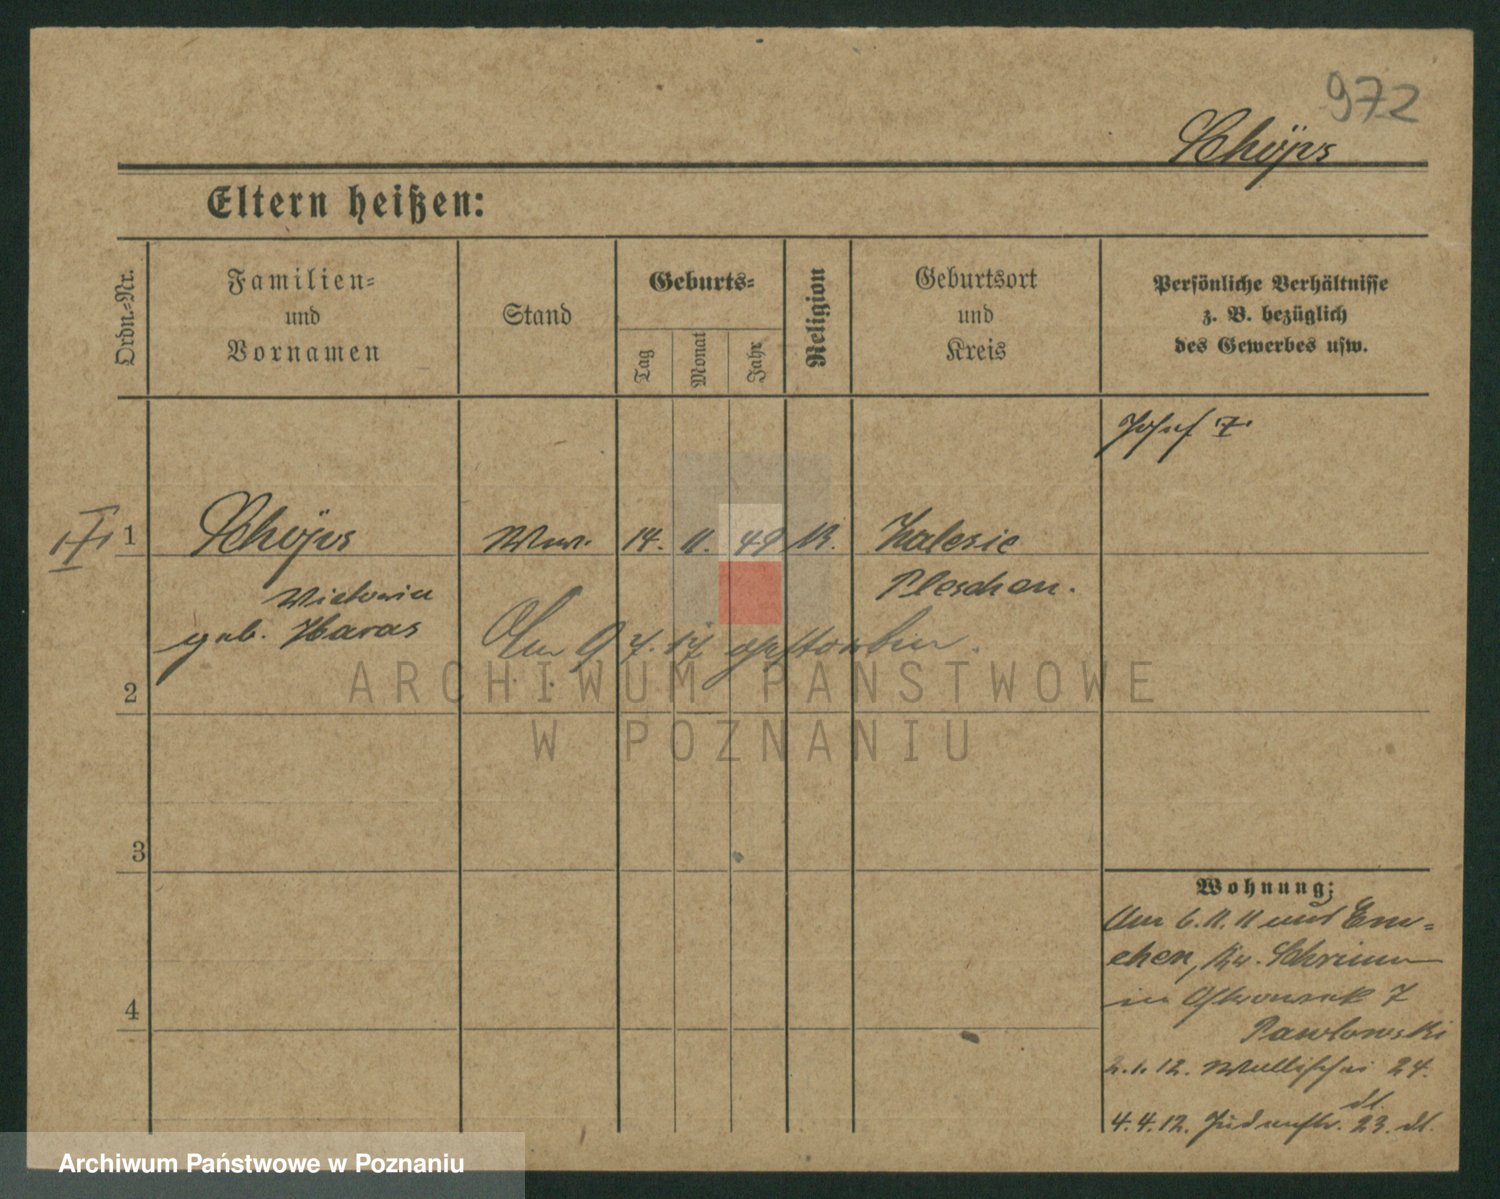 972
Schöps
Eltern heißen:
Ordn.-Nr.
Familien-
und
Vornamen
Stand
Geburts-
Tag
Monat
Jahr
Religion
Geburtsort
und
Kreis
Persönliche Verhältnisse
z. B. bezüglich
des Gewerbes usw.
Josef
1
Schöps
Wwe.
14.
11.
49
K.
Zalesie
Victoria
Pleschen.
geb. Haras
Am 9 7. 17 gestorben.
2
3
4
Wohnung:
Am 6. 11. 11 aus Em-
chen, Kr. Schrimm
in Ostrowek 7
Pawlowski
2. 1. 12. Wallischei 24.
dl.
4. 4. 12. Judenstr. 23. dl.
ARCHIWUM PAŃSTWOWE
W POZNANIU
Archiwum Państwowe w Poznaniu